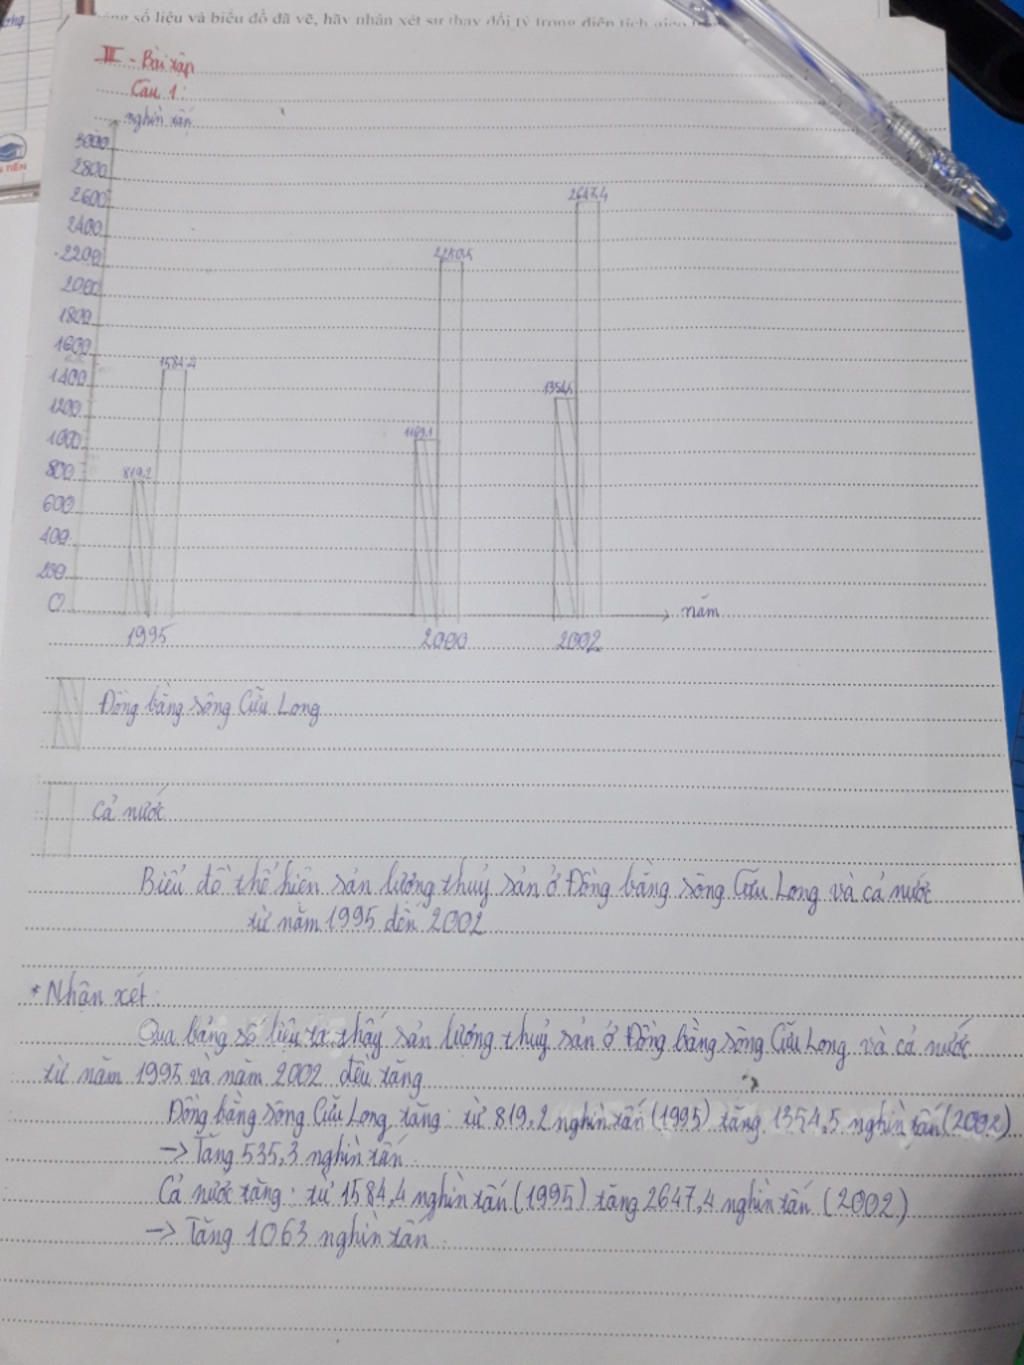 số liệu và biểu đồ đã vẽ, hãy nhận xét sự thay đổi tỷ trọng diện tích gieo
III - Bài tập
Câu 1:
nghìn tấn
3000
2800
2647,4
2600
2400
2200
2250,5
2000
1800
1600
1584,4
1400
1354,5
1200
1169,1
1000
800
819,2
600
400
200
0
năm
1995
2000
2002
Đồng bằng sông Cửu Long
Cả nước
Biểu đồ thể hiện sản lượng thuỷ sản ở Đồng bằng sông Cửu Long và cả nước
từ năm 1995 đến 2002
* Nhận xét:
Qua bảng số liệu ta thấy sản lượng thuỷ sản ở Đồng bằng sông Cửu Long và cả nước
từ năm 1995 và năm 2002 đều tăng
Đồng bằng sông Cửu Long tăng: từ 819,2 nghìn tấn (1995) tăng 1354,5 nghìn tấn (2002)
-> Tăng 535,3 nghìn tấn
Cả nước tăng: từ 1584,4 nghìn tấn (1995) tăng 2647,4 nghìn tấn (2002)
-> Tăng 1063 nghìn tấn